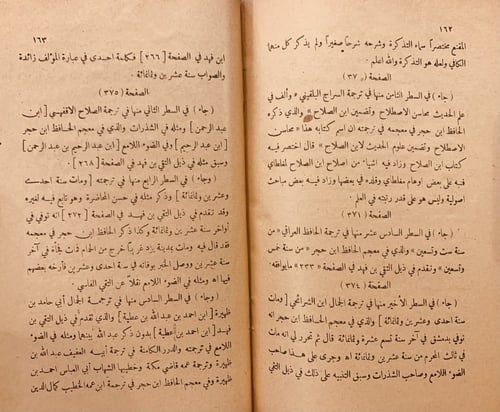 ١٦٢
المقنع مختصراً سماه التذكرة وشرحه شرحاً صغيراً ولم يذكر كل منهما
الكافي ولعله هو التذكرة والله اعلم .
(الصفحة ٣٧٠)
( جاء ) في السطر الثامن منها في ترجمة السراج البلقيني « وألف في
علم الحديث محاسن الاصطلاح وتضمين ابن الصلاح » والذي ذكره
الحافظ ابن حجر في معجمه في ترجمته ان اسم كتابه هذا « محاسن
الاصطلاح وتضمين علوم الحديث لابن الصلاح » قال اختصر فيه
كتاب ابن الصلاح وزاد فيه اشيا من اصلاح ابن الصلاح لمغلطاي
فنبه على بعض اوهام مغلطاي وقلده في بعضها وزاد فيه بعض مباحث
اصولية وليس هو على قدر رتبته في العلم .
(الصفحة ٣٧١)
( جاء ) في السطر السادس منها في ترجمة الحافظ العراقي « من
سنة ست وتسعين » والذي في معجم الحافظ ابن حجر « من سنة خمس
وتسعين » وتقدم في ذيل التقي بن فهد في الصفحة « ٢٣٣ » مايوافقه .
(الصفحة ٣٧٤)
( جاء ) في السطر الأخير منها في ترجمة الجمال ابن الشرائحي [ ومات
سنة احدى وعشرين وثمانمائة ] والذي في معجم الحافظ ابن حجر انه
توفي بدمشق في آخر سنة تسع عشرة وثمانمائة قال ثم تحرر لي انه مات
في ثالث المحرم من سنة عشرين وثمانمائة اه وجرى على هذا صاحب
الضوء اللامع وصاحب الشذرات وسبق التنبيه على ذلك في ذيل التقي
١٦٣
ابن فهد في الصفحة [ ٢٦٦ ] فكلمة احدى في عبارة المؤلف زائدة
والصواب سنة عشرين وثمانمائة .
(الصفحة ٣٧٥)
( جاء ) في السطر الثاني منها في ترجمة الصلاح الاقفهسي [ ابن
عبد الرحمن ] ومثله في الشذرات والذي في معجم الحافظ ابن حجر
[ ابن عبد الرحيم ] وفي الضوء اللامع [ ابن عبد الرحيم بن عبد الرحمن ]
وسبق مثله في ذيل التقي بن فهد في الصفحة [ ٢٦٨ ] .
( وجاء ) في السطر الرابع منها في ترجمته [ ومات سنة احدى
وعشرين وثمانمائة ] وذكر مثله في حسن المحاضرة وهو تابع فيه لغيره
وقد تقدم في ذيل التقي بن فهد في الصفحة [ ٢٧٢ ] انه توفي في
أواخر سنة عشرين وثمانمائة وكذا ذكر الحافظ ابن حجر في معجمه
فقد قال فيه ومات بمدينة يزد غريباً خرج من الحمام فمات فجأة في آخر
سنة عشرين ووصل الخبر بوفاته في سنة احدى وعشرين فأرخه بعضهم
فيها اه ومثله في الضوء اللامع نقلا عن التقي الفاسي .
( جاء ) في السطر السادس منها في ترجمة الجمال أبي حامد بن
ظهيرة [ ابن احمد بن عبد الله بن عطية ] والذي تقدم في ذيل التقي بن
فهد [ ابن احمد بن عطية ] بدون ذكر عبد الله بينهما ومثله في الضوء
اللامع في ترجمته والدرر الكامنة في ترجمة أبيه العفيف عبد الله بن
ظهيرة وترجمة عمه قاضي مكة وخطيبها الشهاب أبي العباس احمد بن
ظهيرة وفي معجم الحافظ ابن حجر في ترجمة ابن عمه الخطيب كمال الدين